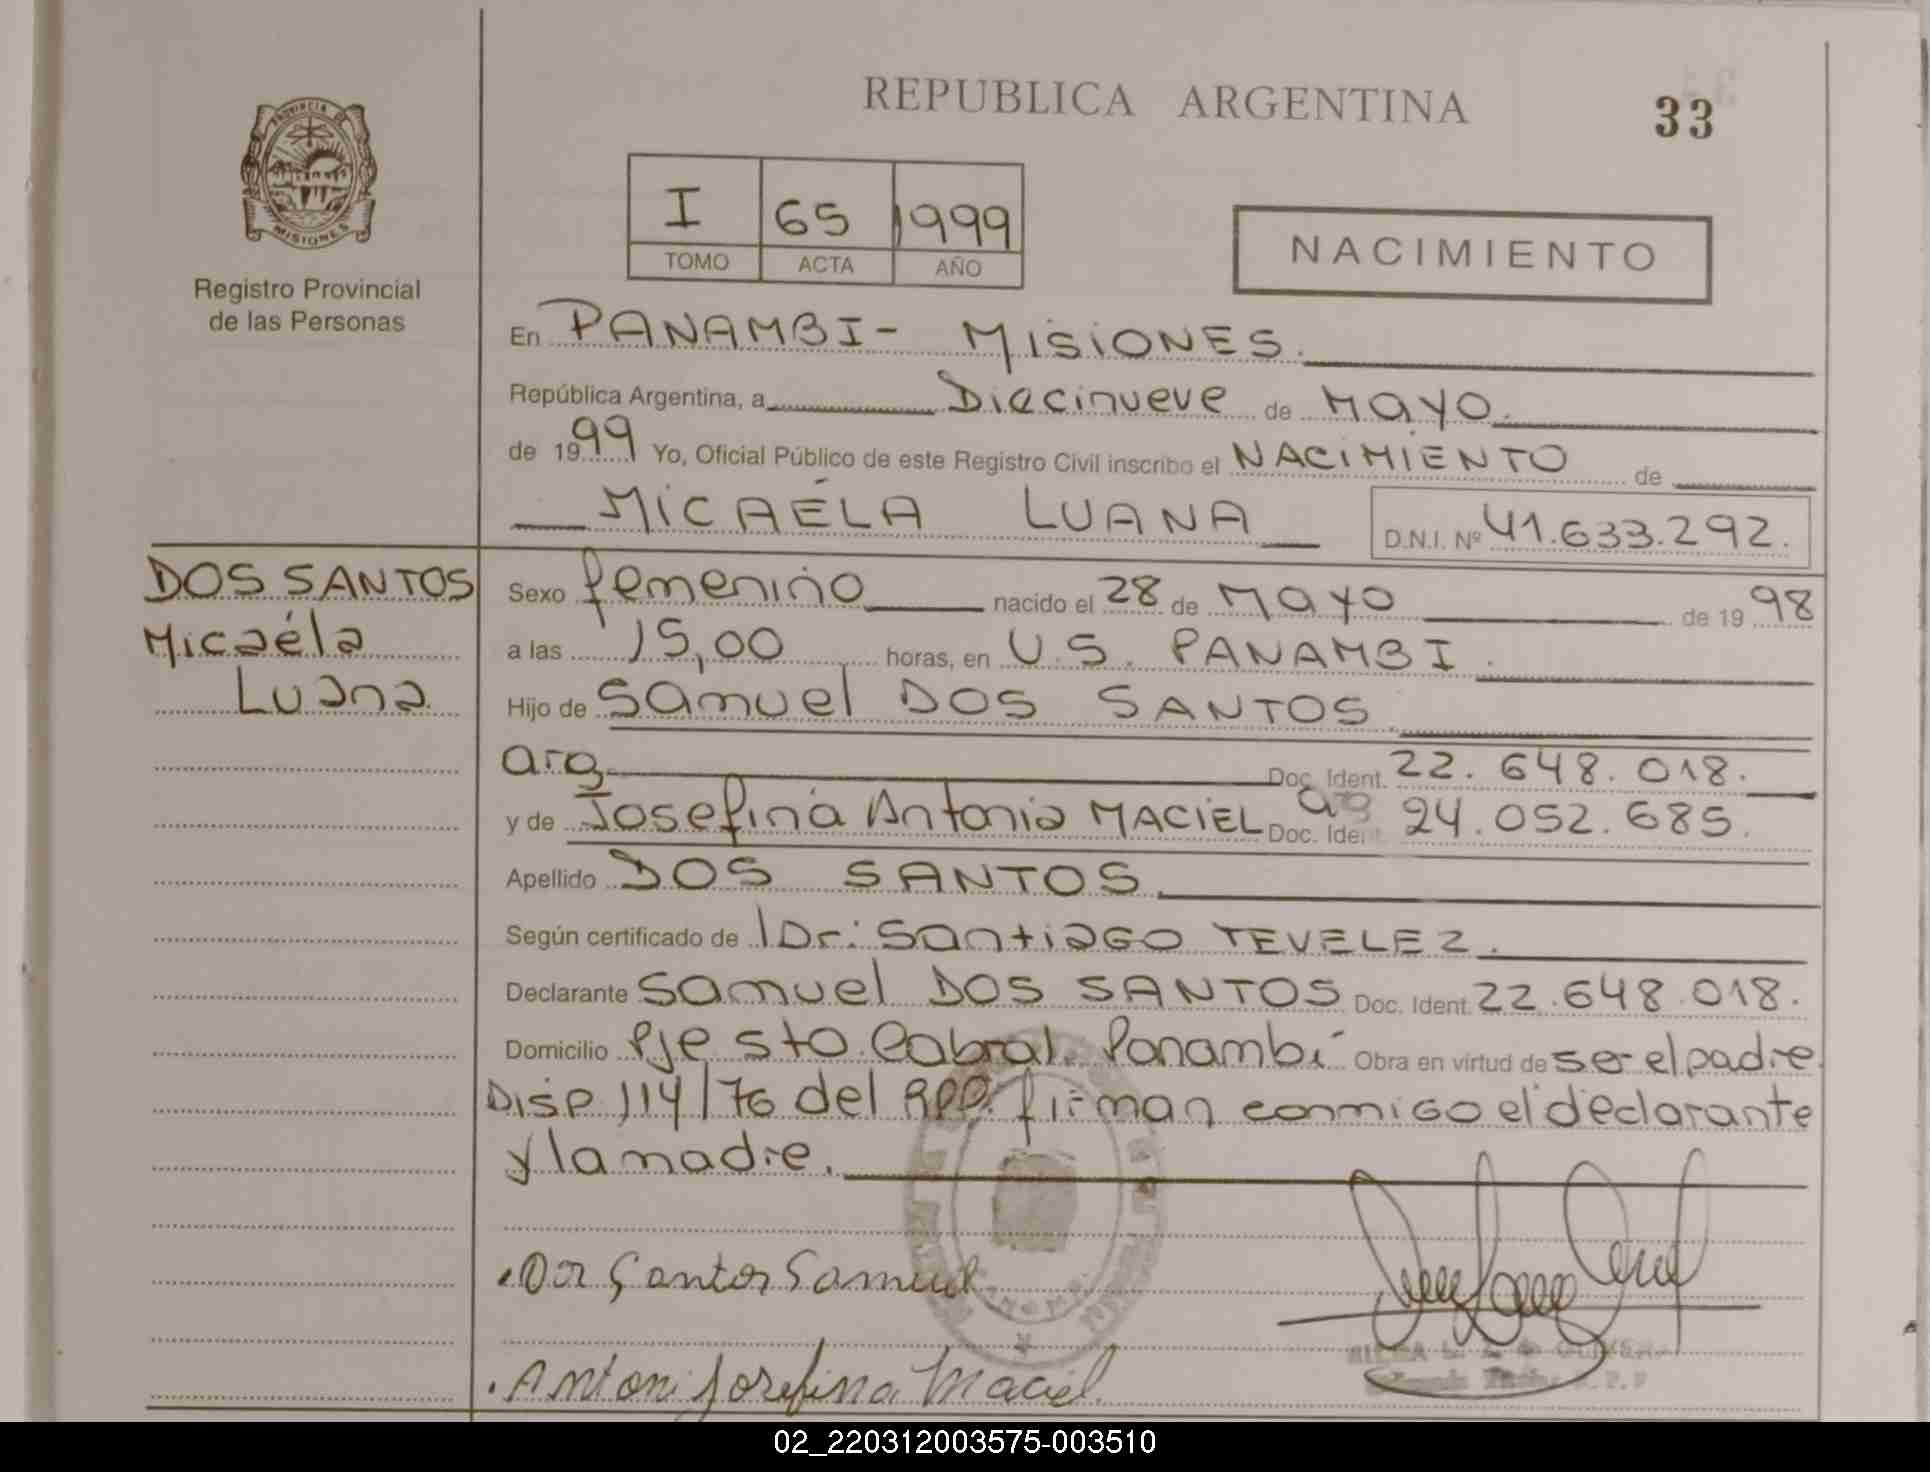 REPUBLICA ARGENTINA
33
PROVINCIA DE
MISIONES
Registro Provincial
de las Personas
I 65 1999
TOMO ACTA AÑO
NACIMIENTO
En PANAMBI- MISIONES.
República Argentina, a Diecinueve de MAYO.
de 1999 Yo, Oficial Público de este Registro Civil inscribo el NACIMIENTO de
MICAÉLA LUANA D.N.I. Nº 41.633.292.
DOS SANTOS
Micaéla
Luana
Sexo femenino nacido el 28 de MAYO de 1998
a las 15,00 horas, en U.S. PANAMBI.
Hijo de Samuel DOS SANTOS
arg. Doc. Ident. 22.648.018.
y de Josefina Antonia MACIEL arg Doc. Ident 24.052.685.
Apellido DOS SANTOS.
Según certificado de Dr: Santiago TEVELEZ.
Declarante Samuel DOS SANTOS Doc. Ident. 22.648.018.
Domicilio Pje Sto. Cabral. Panambí Obra en virtud de ser el padre.
Disp 114/76 del RPP. firman conmigo el declarante
y la madre.
Dos Santos Samuel
Antoni Josefina Maciel.
02_220312003575-003510